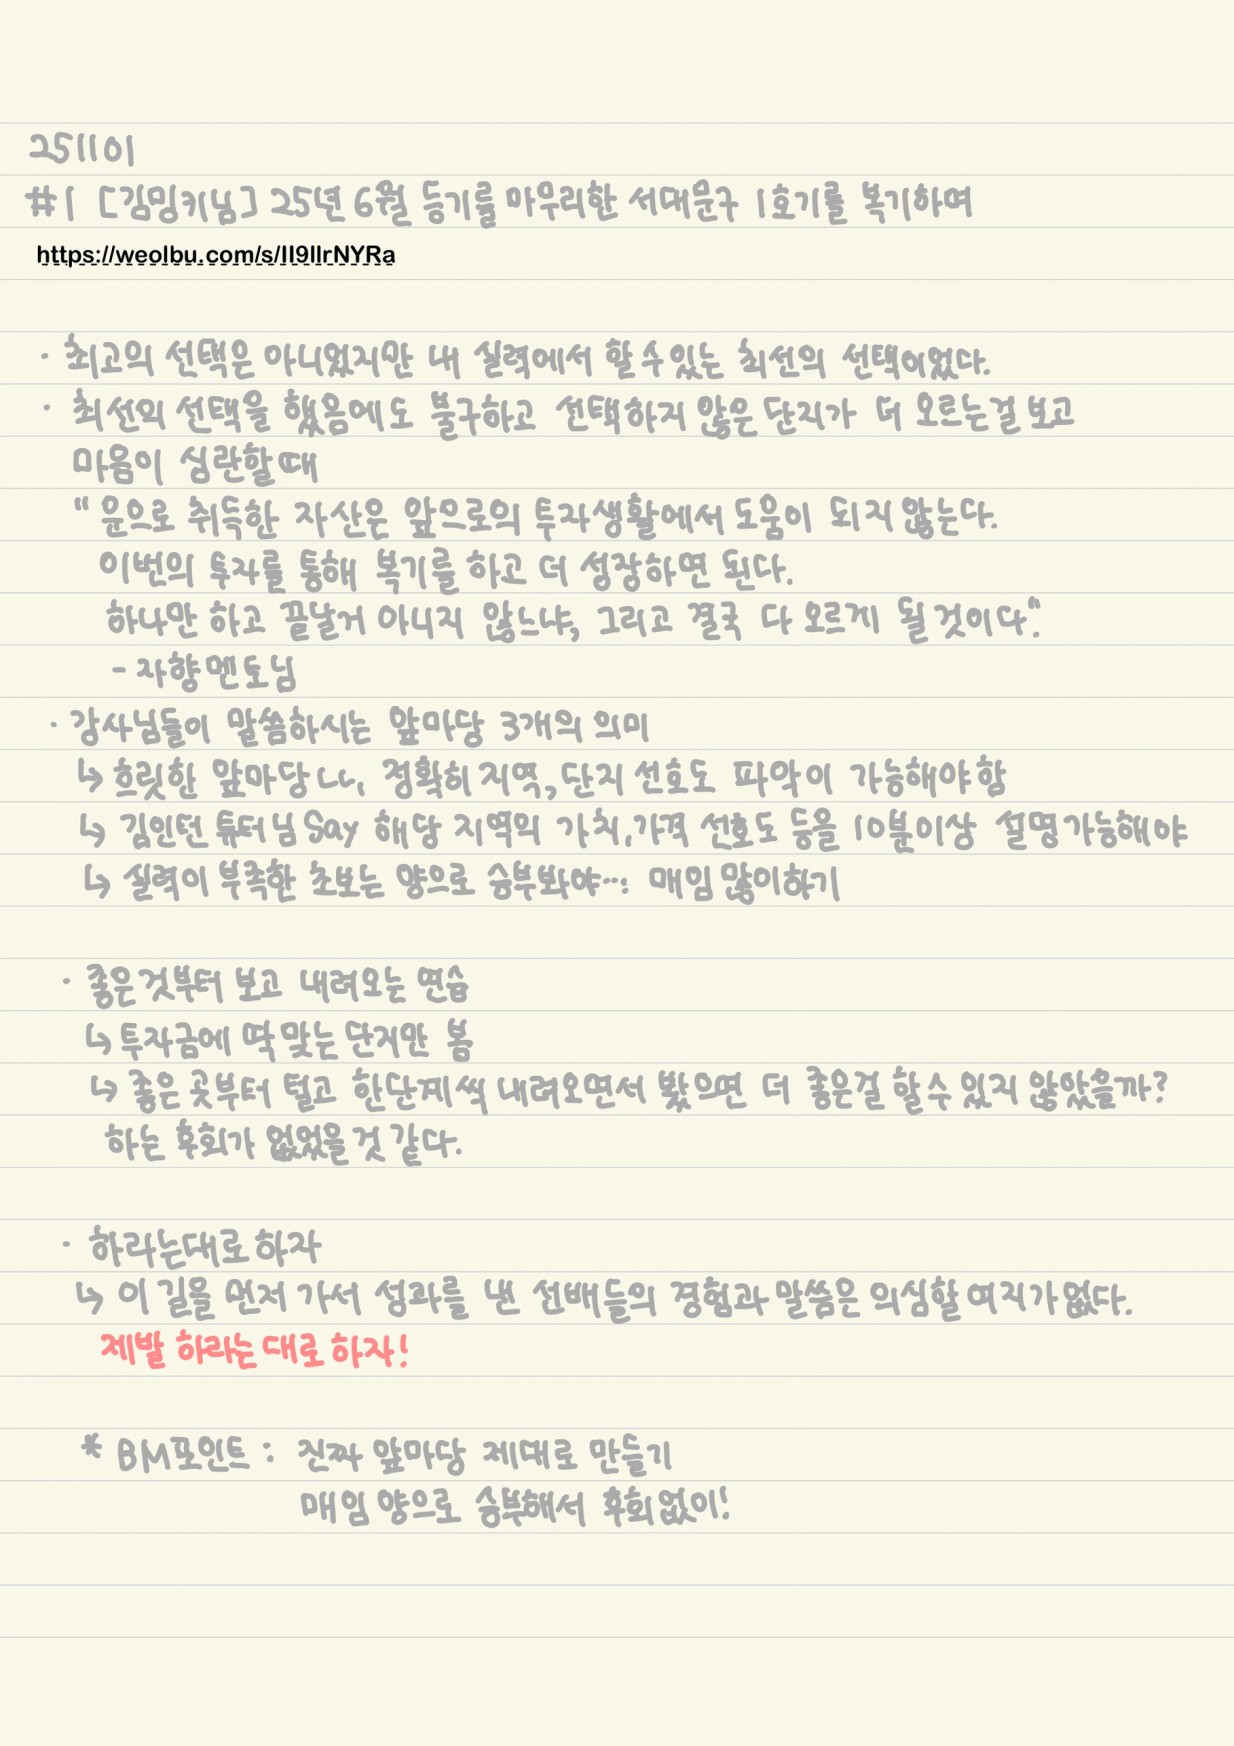 251101
#1 [김밍키님] 25년 6월 등기를 마무리한 서대문구 1호기를 복기하며
https://weolbu.com/s/II9IlrNYRa
· 최고의 선택은 아니었지만 내 실력에서 할 수 있는 최선의 선택이었다.
· 최선의 선택을 했음에도 불구하고 선택하지 않은 단지가 더 오르는걸 보고
마음이 심란할때
"운으로 취득한 자산은 앞으로의 투자생활에서 도움이 되지 않는다.
이번의 투자를 통해 복기를 하고 더 성장하면 된다.
하나만 하고 끝날거 아니지 않느냐, 그리고 결국 다 오르게 될 것이다."
- 자향멘토님
· 강사님들이 말씀하시는 앞마당 3개의 의미
↳ 흐릿한 앞마당 ㄴㄴ, 정확히 지역, 단지 선호도 파악이 가능해야함
↳ 김인턴 튜터님 Say 해당 지역의 가치, 가격 선호도 등을 10분이상 설명가능해야
↳ 실력이 부족한 초보는 양으로 승부봐야…: 매임 많이하기
· 좋은것부터 보고 내려오는 연습
↳ 투자금에 딱 맞는 단지만 봄
↳ 좋은 곳부터 털고 한단계씩 내려오면서 봤으면 더 좋은걸 할 수 있지 않았을까?
하는 후회가 없었을 것 같다.
· 하라는대로 하자
↳ 이 길을 먼저 가서 성과를 낸 선배들의 경험과 말씀은 의심할 여지가 없다.
제발 하라는 대로 하자!
* BM포인트 : 진짜 앞마당 제대로 만들기
매임 양으로 승부해서 후회없이!